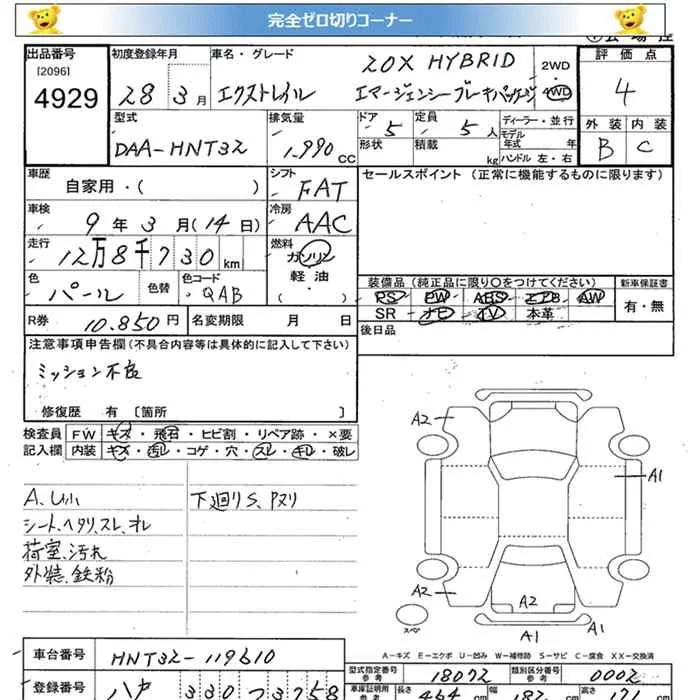 完全ゼロ切りコーナー
出品番号 [2096] 4929
初度登録年月 28 3月
車名・グレード エクストレイル 20X HYBRID エマージェンシーブレーキパッケージ
2WD 4WD
評価点 4
外装 B 内装 C
型式 DAA-HNT32
排気量 1,990cc
ドア 5 形状
定員 5人 積載 kg
ディーラー・並行
モデル年式 年
ハンドル 左・右
車歴 自家用・( )
シフト FAT
セールスポイント (正常に機能するものに限ります)
車検 9年3月(14日)
冷房 AAC
走行 12万8千730km
燃料 ガソリン 軽油 ( ・ )
色 パール 色替 色コード QAB
装備品 (純正品に限り○をつけてください)
PS PW ABS エアB AW
SR ナビ TV 本革
新車保証書 有・無
R券 10.850円 名変期限 月 日
後日品
注意事項申告欄(不具合内容等は具体的に記入して下さい)
ミッション不良
修復歴 有 [箇所 ]
検査員記入欄
FW キズ・飛石・ヒビ割・リペア跡・×要
内装 キズ・汚れ・コゲ・穴・スレ・キレ・破レ
A、U小 下廻りS、Pヌリ
シート、ヘタリ、スレ、オレ
荷室、汚れ
外装、鉄粉
A2
A1
A2
A2
A1
A1
スペア
A-キズ E-エクボ U-凹み W-補修跡 S-サビ C-腐食 XX-交換済
車台番号 HNT32-119610
型式指定番号 参考 18072 類別区分番号 参考 0002
登録番号 ハ 330
車庫証明用参考 長さ 464cm 幅 182cm 高さ 171cm